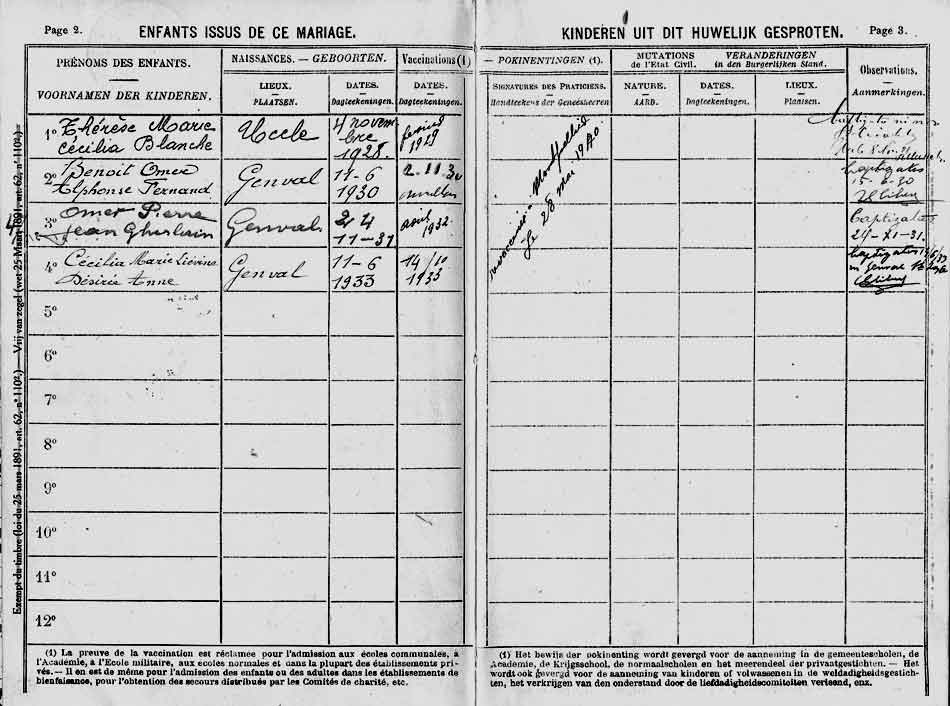 Page 2.
ENFANTS ISSUS DE CE MARIAGE.
PRÉNOMS DES ENFANTS.
VOORNAMEN DER KINDEREN.
NAISSANCES. — GEBOORTEN.
LIEUX.
PLAATSEN.
DATES.
Dagteekeningen.
Vaccinations (1)
DATES.
Dagteekeningen.
1º Thérèse Marie
Cécilia Blanche
Uccle
4 novem
bre
1928.
1929
2º Benoit Omer
Alphonse Fernand
Genval
11-6
1930
2-11-30
3º Omer Pierre
Jean Ghislain
Genval
24
11-31.
avril
1932.
4º Cécilia Marie Liévine
Désirée Anne
Genval
11-6
1933
14/10
1933
5º
6º
7º
8º
9º
10º
11º
12º
(1) La preuve de la vaccination est réclamée pour l'admission aux écoles communales, à
l'Académie, à l'Ecole militaire, aux écoles normales et dans la plupart des établissements pri-
vés. — Il en est de même pour l'admission des enfants ou des adultes dans les établissements de
bienfaisance, pour l'obtention des secours distribués par les Comités de charité, etc.
Exempt du timbre (loi du 25 mars 1891, art. 62, nº 110².) — Vrij van zegel (wet 25 Maart 1891, art. 62, nº 110².)
KINDEREN UIT DIT HUWELIJK GESPROTEN.
Page 3.
— POKINENTINGEN (1).
SIGNATURES DES PRATICIENS.
Handteekens der Geneesheeren
MUTATIONS
de l'Etat Civil.
VERANDERINGEN
in den Burgerlijken Stand.
NATURE.
AARD.
DATES.
Dagteekeningen.
LIEUX.
Plaatsen.
Observations.
Aanmerkingen.
le 28 mai 1940
baptizatus
15-6-30
baptizatus
24-XI-31.
baptizata
in Genval
(1) Het bewijs der pokinenting wordt gevergd voor de aanneming in de gemeentescholen, de
Academie, de Krijgsschool, de normaalscholen en het meerendeel der privaatgestichten. — Het
wordt ook gevergd voor de aanneming van kinderen of volwassenen in de weldadigheidsgestich-
ten, het verkrijgen van den onderstand door de liefdadigheidscomiteiten verleend, enz.